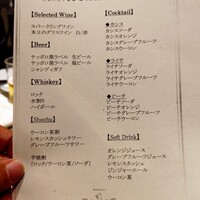 【Selected Wine】
スパークリングワイン
本日のグラスワイン 白/赤
【Beer】
サッポロ黒ラベル 生ビール
サッポロ黒ラベル 瓶ビール
シャンディガフ
【Whiskey】
ロック
水割り
ハイボール
【Shochu】
ウーロン茶割
レモンスカッシュサワー
グレープフルーツサワー
芋焼酎
(ロック/ウーロン茶/ソーダ)
【Cocktail】
◆カシス
カシスソーダ
カシスオレンジ
カシスグレープフルーツ
カシスウーロン
◆ライチ
ライチソーダ
ライチオレンジ
ライチグレープフルーツ
ライチウーロン
◆ピーチ
ピーチソーダ
ピーチオレンジ
ピーチグレープフルーツ
ピーチウーロン
【Soft Drink】
オレンジジュース
グレープフルーツジュース
レモンスカッシュ
ジンジャーエール
ウーロン茶